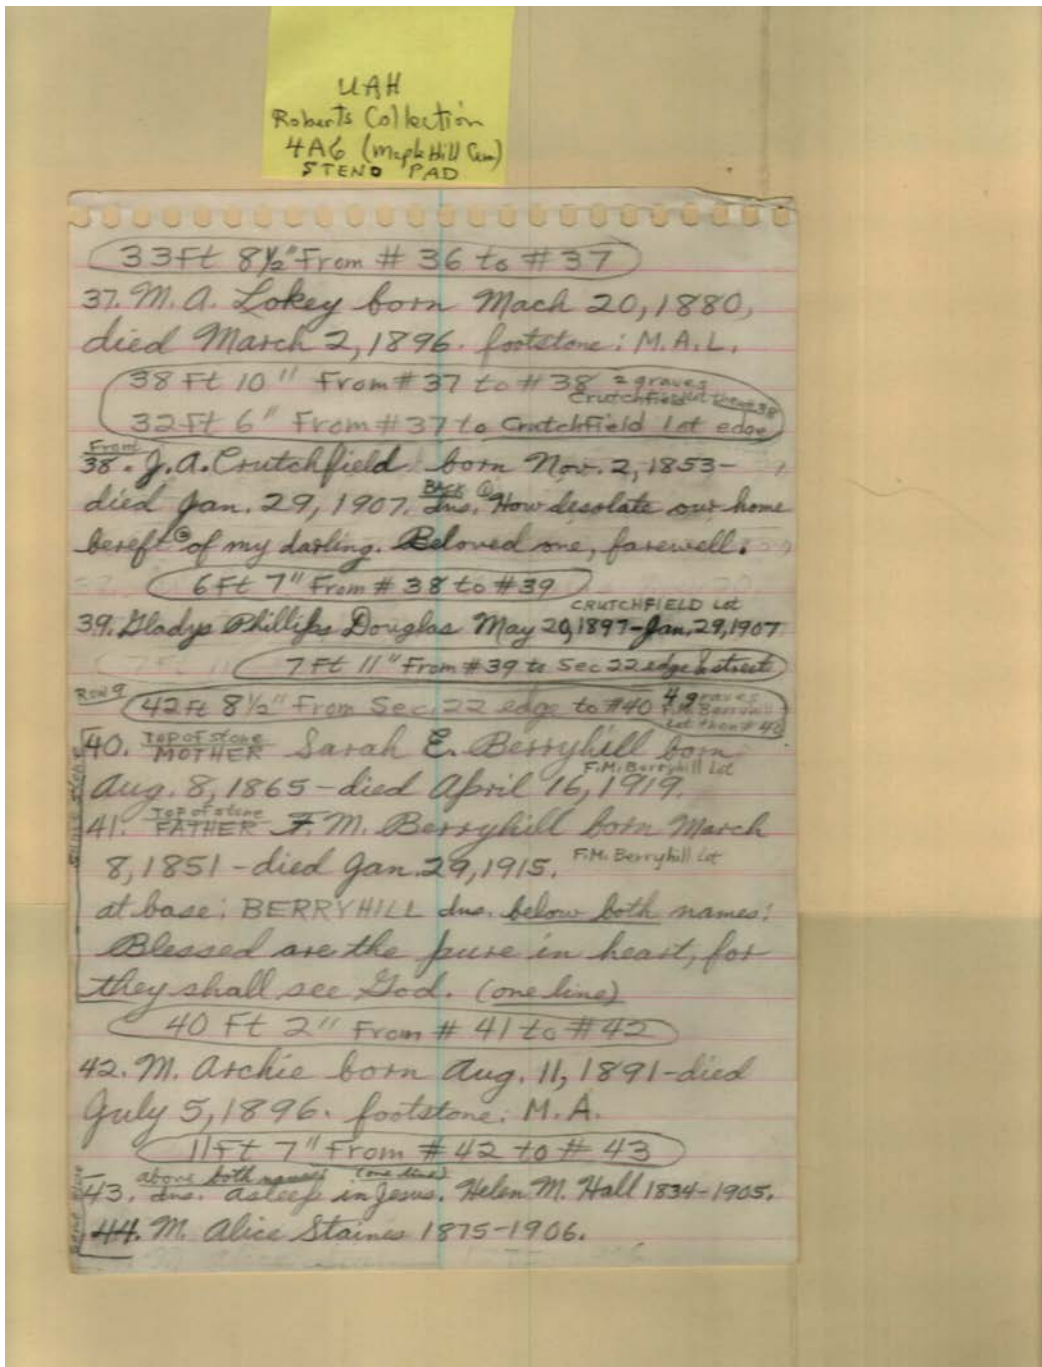 UAH
Roberts Collection
4A6 (Maple Hill Cem)
STENO PAD
33Ft 8½" From # 36 to # 37
37. M. A. Lokey born Mach 20, 1880,
died March 2, 1896. footstone: M.A.L.
38 Ft 10" From # 37 to # 38 2 graves
Crutchfield Lot then # 38
32Ft 6" From # 37 to Crutchfield Lot edge
Front
38. J. A. Crutchfield born Nov. 2, 1853-
died Jan. 29, 1907. BACK Ins. ① How desolate our home
bereft ② of my darling. Beloved one, farewell.
6Ft 7" From # 38 to # 39
CRUTCHFIELD Lot
39. Gladys Phillips Douglas May 20, 1897-Jan. 29, 1907
7 Ft 11" From # 39 to Sec 22 edge & street
Row 9
42Ft 8½" From Sec. 22 edge to #40 4 graves
F.M. Berryhill
Lot then # 40
Same stone
40. Top of stone MOTHER Sarah E. Berryhill born
F.M. Berryhill Lot
Aug. 8, 1865-died April 16, 1919.
41. Top of stone FATHER F. M. Berryhill born March
8, 1851-died Jan. 29, 1915. F.M. Berryhill Lot
at base: BERRYHILL Ins. below both names:
Blessed are the pure in heart, for
they shall see God. (one line)
40 Ft 2" From # 41 to # 42
42. M. Archie born Aug. 11, 1891-died
July 5, 1896. footstone: M.A.
11Ft 7" From # 42 to # 43
above both names (one line)
Same stone
43. Ins. Asleep in Jesus. Helen M. Hall 1834-1905.
44. M. Alice Staines 1875-1906.